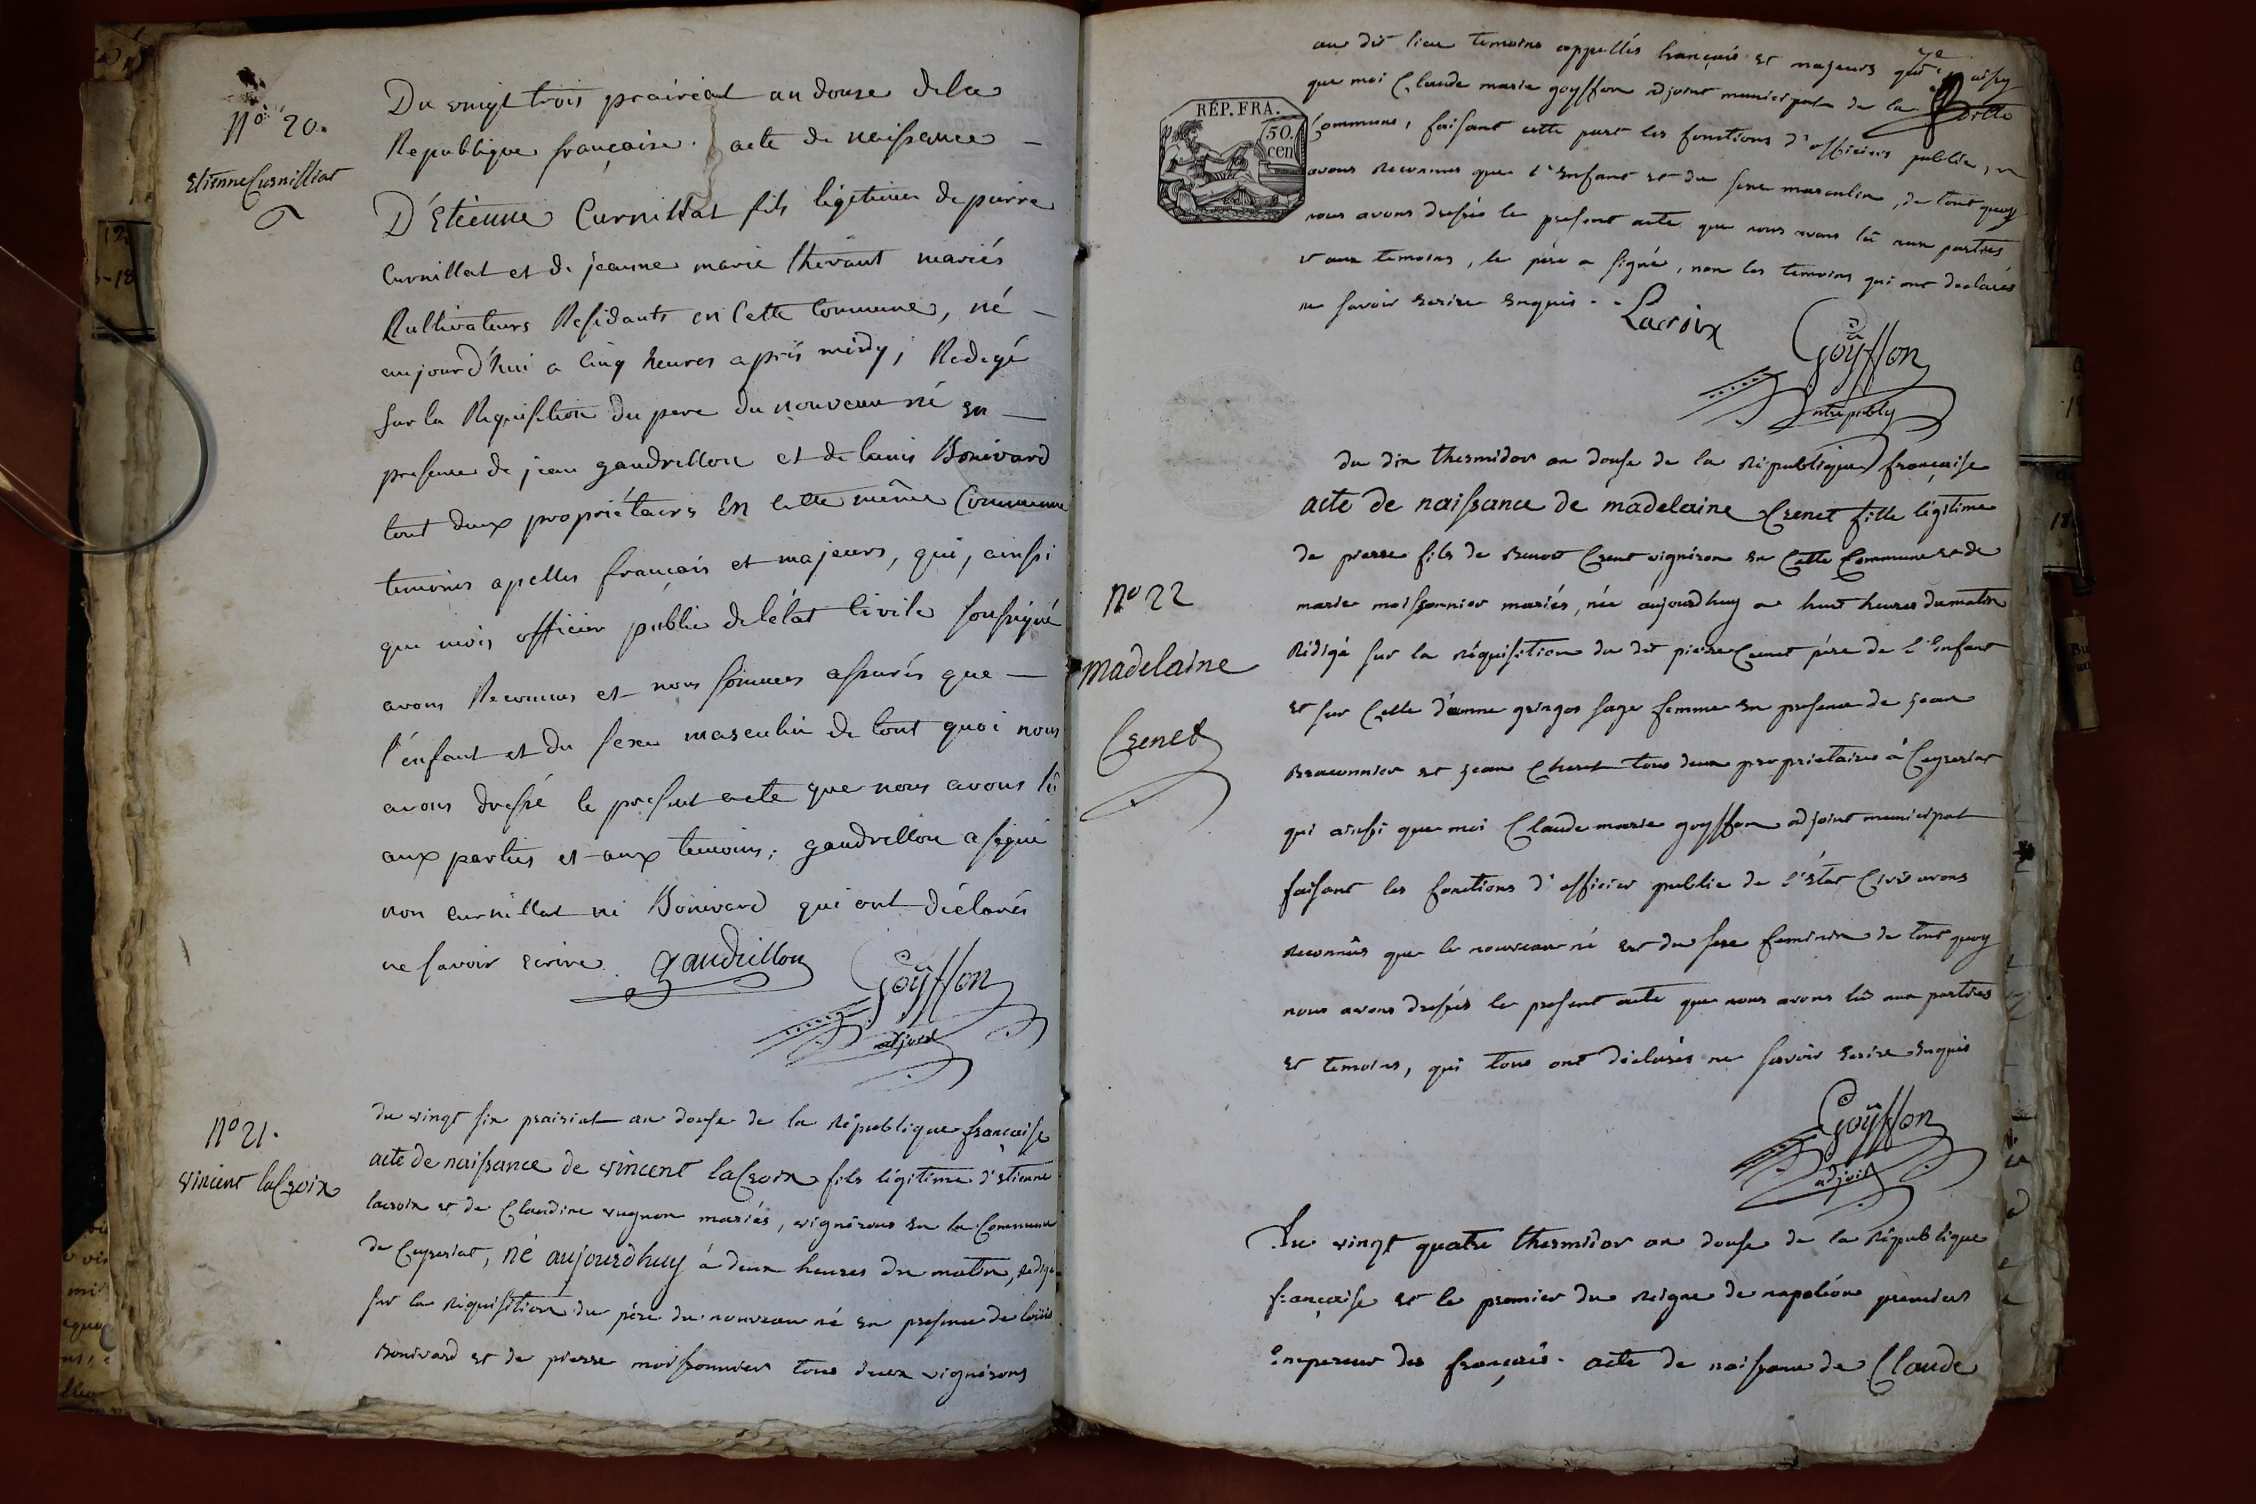 N.° 20.
Etienne Curnilliat
Du vingt trois prairial an douze de la
Republique française. acte de naissance
D'Etienne Curnillat fils légitime de pierre
Curnillat et de jeanne marie thévant mariés
Cultivateurs Residants en Cette Commune, né
aujourd'hui a Cinq heures après midy, Redigé
sur la Requisition du pere du nouveau né en
presence de jean gaudrillon et de louis Bonivard
tout deux propriétaires En cette même Commune
temoins apellés français et majeurs, qui, ainsi
que moi officier public de l'état Civile soussigné
avons Reconnus et nous sommes assurés que
l'enfant et du sexe masculin de tout quoi nous
avons dressé le présent acte que nous avons lû
aux parties et aux temoins; gaudrillon a signé
non curnillat ni Bonivard qui ont déclarés
ne savoir ecrire. gaudrillon Goÿffon
adjoint
N° 21.
vincent laCroix
du vingt six prairial an douse de la République française
acte de naissance de vincent laCroix fils légitime d'Etienne
lacroix et de Claudine vugnon mariés, vignérons en la Commune
de Ceyseriat, né aujourdhuy à deux heures du matin, rédigé
sur la réquisition du père du nouveau né en presence de loüis
Bonivard et de pierre moissonnier tous deux vignérons
RÉP. FRA.
50.
cen
au dit lieu temoins appellés français et majeurs qui
que moi Claude marie goyffon adjoint municipal de la ditte
Commune, faisant cette part les fonctions d'officiers public,
avons reconnus que l'Enfant et du sexe masculin, de tout quoy
nous avons dressés le present acte que nous avons lû aux parties
et aux temoins, le père a signé, non les temoins qui ont declarés
ne savoir Ecrire Enquis. Lacroix
Goÿffon
N° 22
madelaine
Crenet
du dix thermidor an douse de la république française
acte de naissance de madelaine Crenet fille légitime
de pierre fils de Benoit Crenet vignéron en Cette Commune et de
marie moissonnier mariés, née aujourdhuy a huit heures du matin
Rédigé sur la réquisition du dit pierre Crenet père de l'Enfant
et sur Celle d'anne gringos sage femme en presence de jean
Braconnier et jean Chenet tous deux proprietaires à Ceyseriat
qui ainsi que moi Claude marie goyffon adjoint municipal
faisant les fonctions d'officier public de l'état Civis avons
reconnûs que le nouveau né est du sexe feminin de tout quoy
nous avons dressés le present acte que nous avons lû aux parties
et temoins, qui tous ont déclarés ne savoir Ecrire Enquis
Goÿffon
adjoint
Du vingt quatre thermidor an douse de la République
française et le premier du reigne de napoléon premier
Empereur des français. acte de naissance de Claude